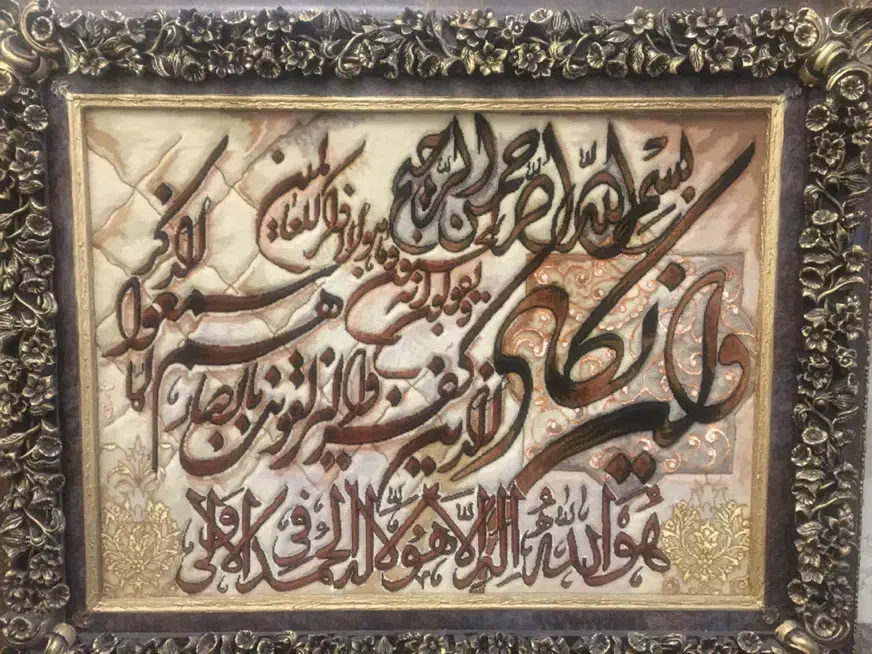 بسم الله الرحمن الرحیم
وان یکاد الذین کفروا لیزلقونک بابصارهم
لما سمعوا الذکر
و یقولون انه لمجنون
و ما هو الا ذکر للعالمین
هُوَ اللهُ لا اِله الا هُو له الحمد فی الاولی